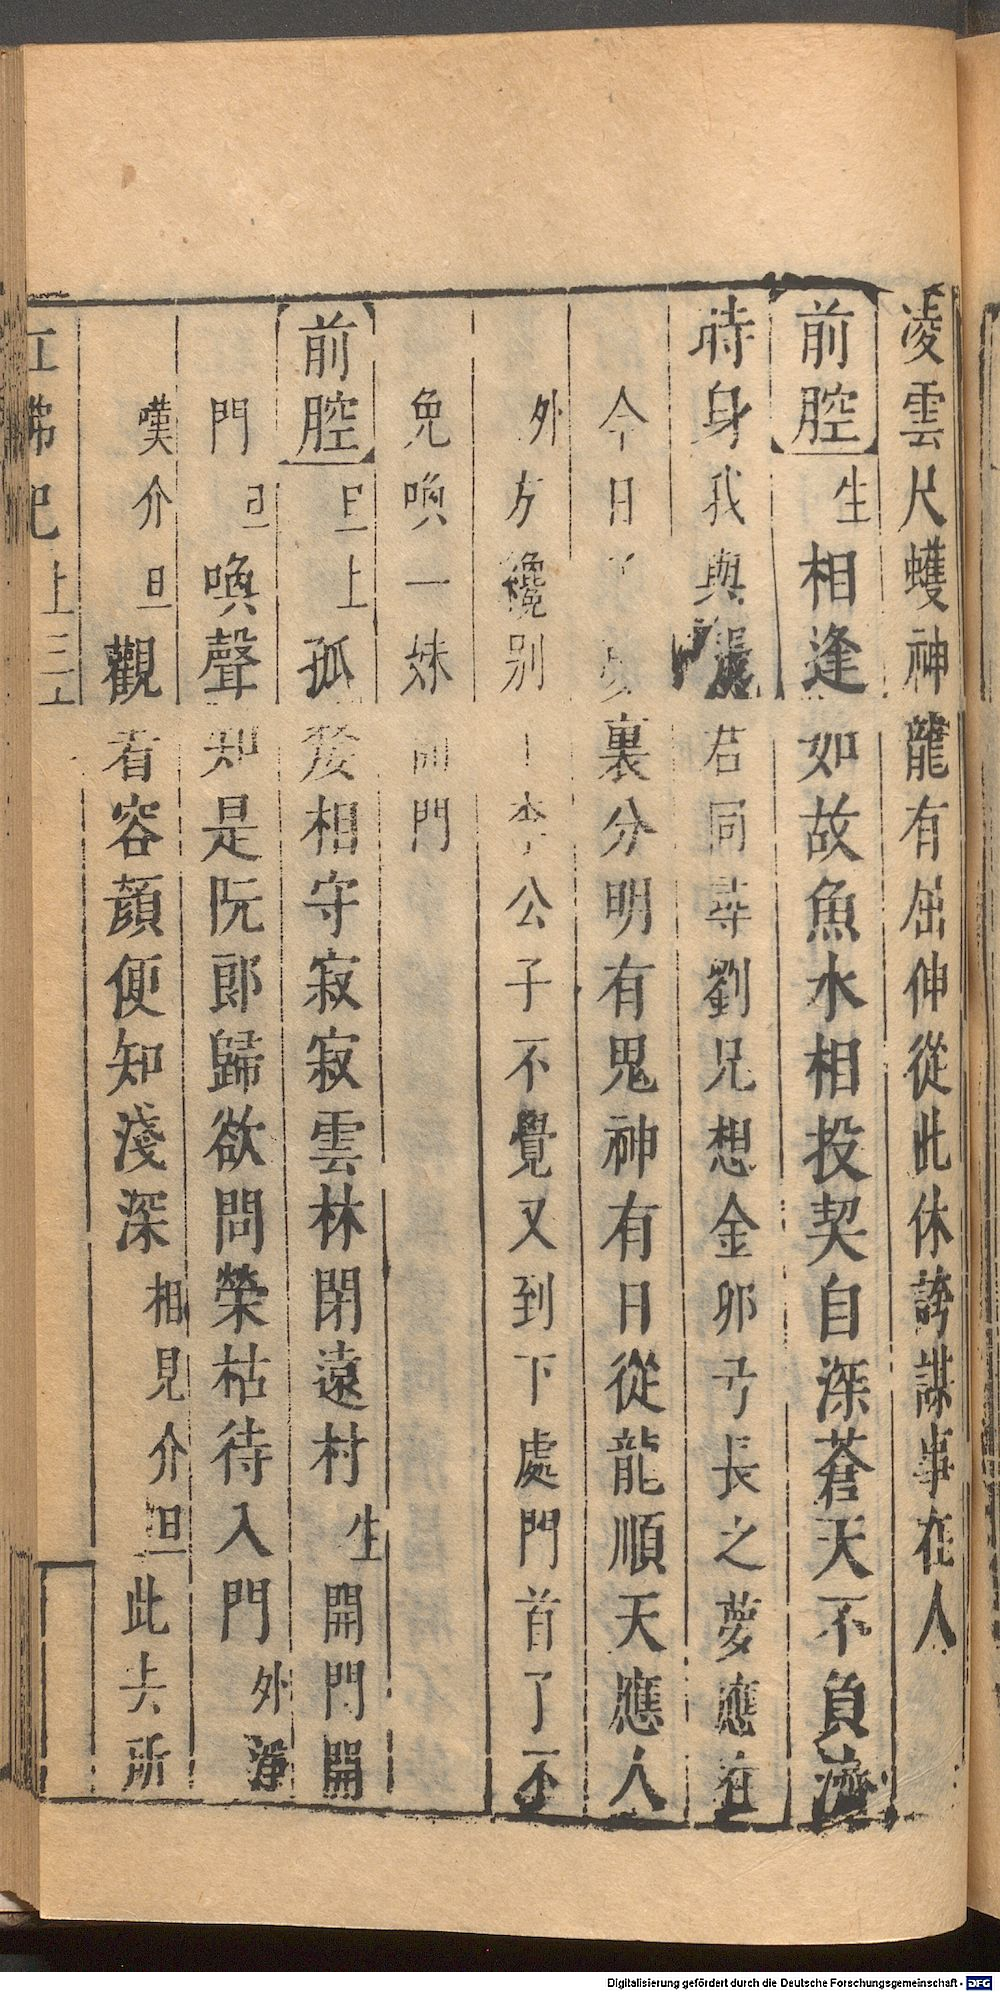 凌雲尺蠖神龍有屈伸從此休誇謀事在人
前腔 生 相逢如故魚水相投契自深蒼天不負濟
時身 我與張君同尋劉兄想金卯刀長之夢應在
今日了 夢裏分明有鬼神有日從龍順天應人
外 方纔別 李公子不覺又到下處門首了不
免喚一妹開門
前腔 旦上 孤嫠相守寂寂雲林閉遠村 生 開門開
門 旦 喚聲知是阮郎歸欲問榮枯待入門 外淨
嘆介 旦 觀看容顏便知淺深 相見介 旦 此去所
紅拂記 上 三十
Digitalisierung gefördert durch die Deutsche Forschungsgemeinschaft - DFG